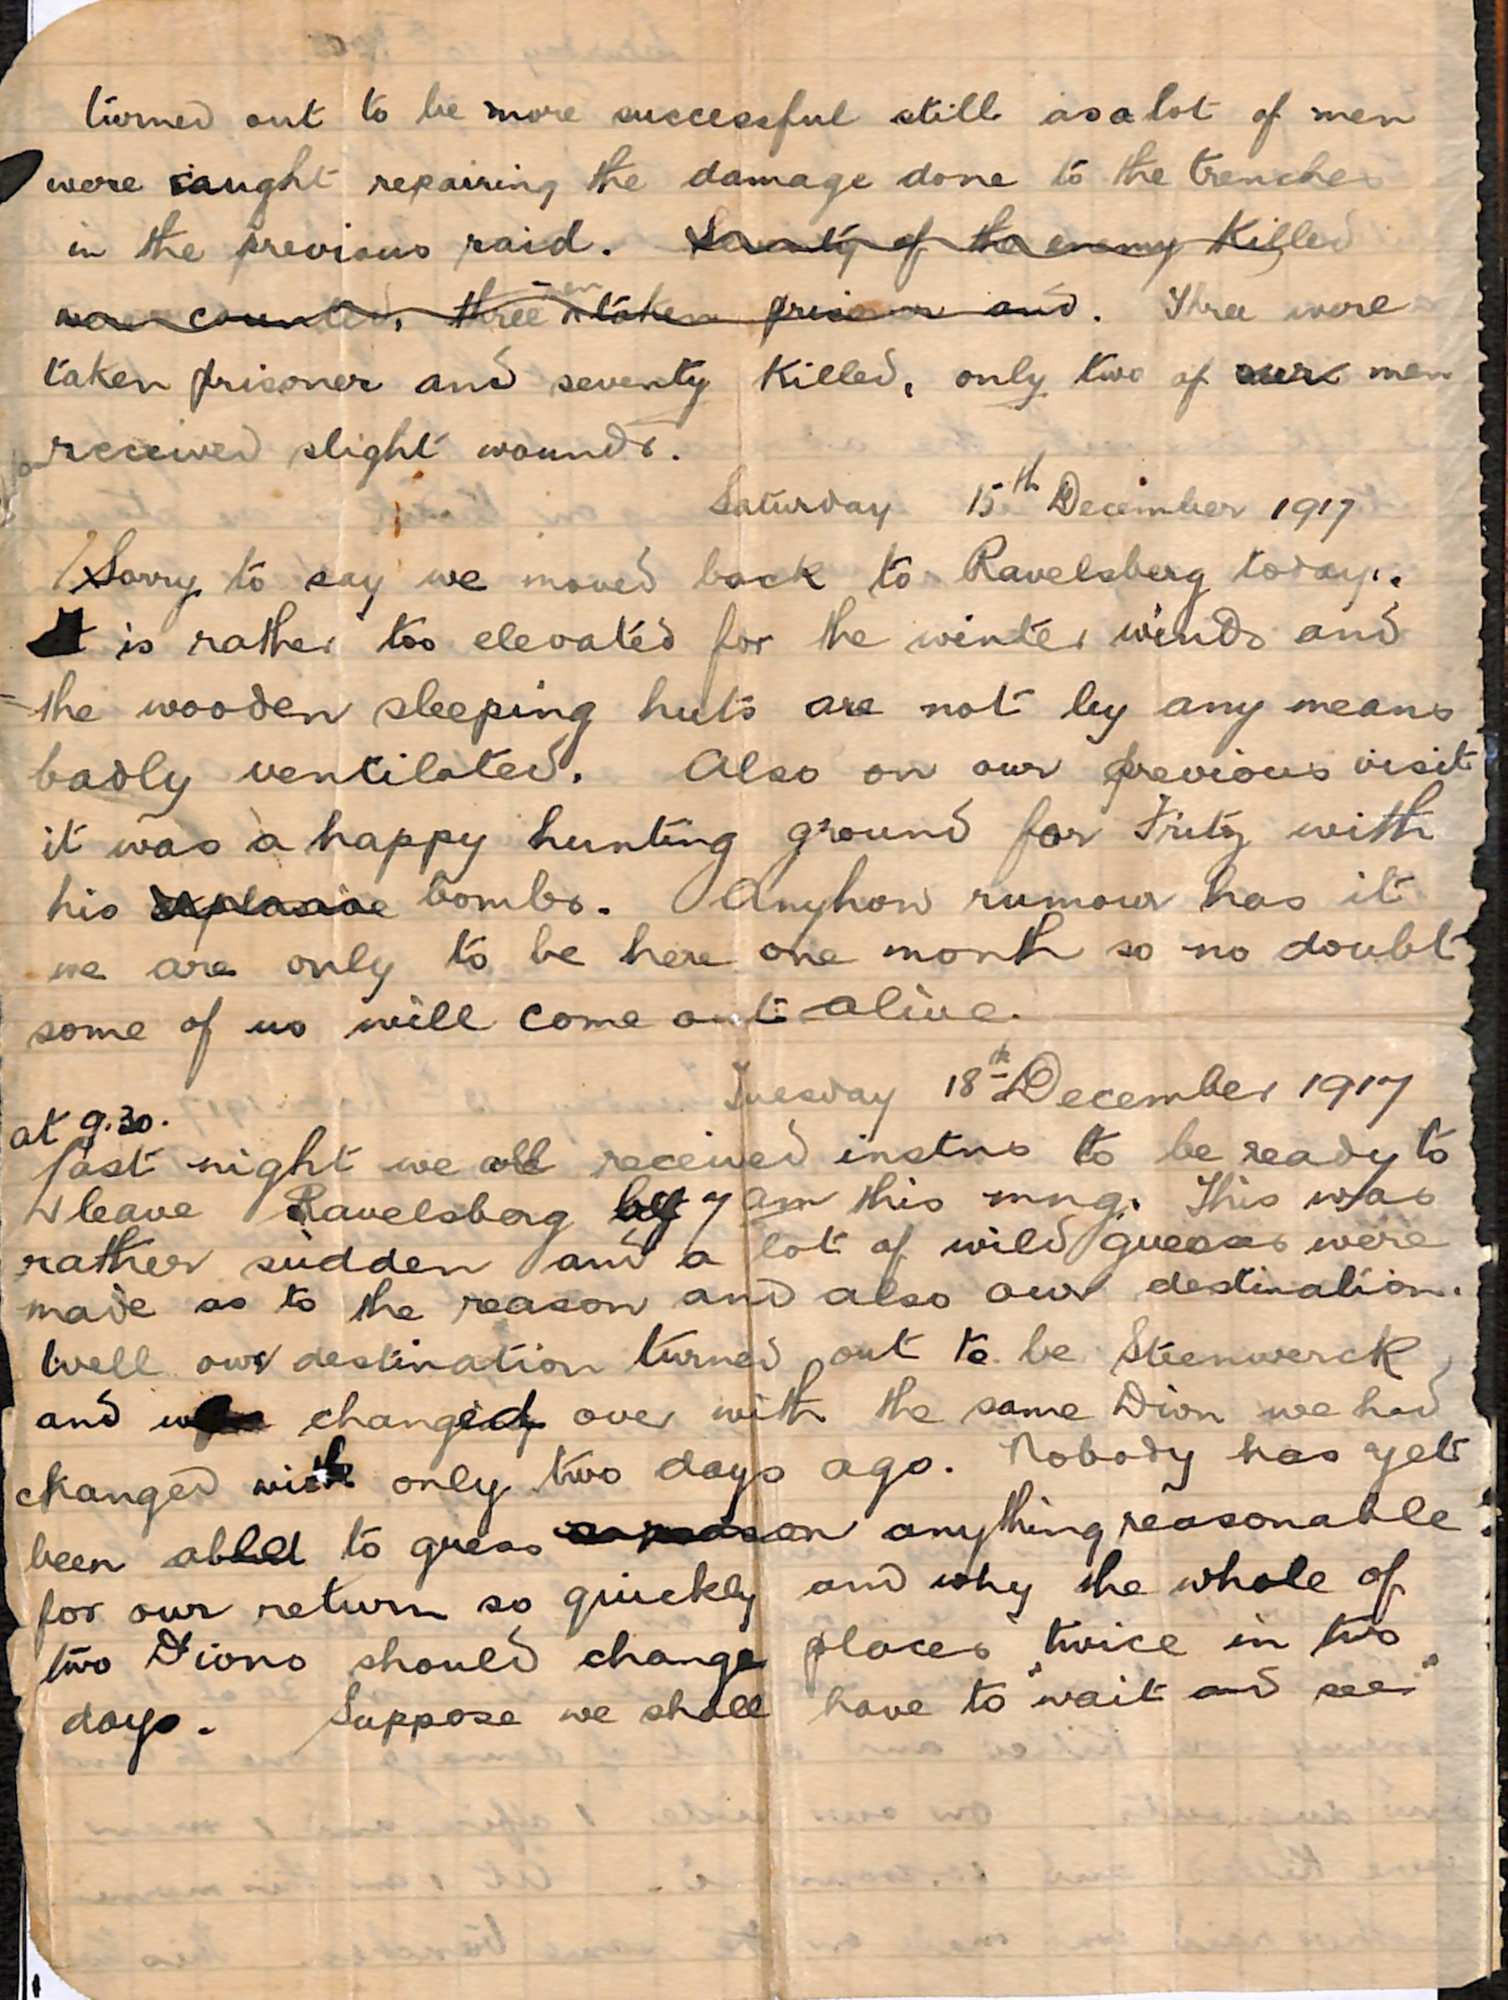 turned out to be more successful still as a lot of men
were caught repairing the damage done to the trenches
in the previous raid. Seventy of the enemy Killed
were counted, three men taken prisoner and. Three were
taken prisoner and seventy Killed, only two of our men
received slight wounds.
Saturday 15th December 1917
Sorry to say we moved back to Ravelsberg today.
It is rather too elevated for the winter winds and
the wooden sleeping huts are not by any means
badly ventilated. Also on our previous visit
it was a happy hunting ground for Fritz with
his explosive bombs. Anyhow rumour has it
we are only to be here one month so no doubt
some of us will come out alive.
Tuesday 18th December 1917
at 9.30.
last night we all received instns to be ready to
leave Ravelsberg by 7 am this mng. This was
rather sudden and a lot of wild guesses were
made as to the reason and also our destination.
Well our destination turned out to be Steenwerck
and changed over with the same Divn we had
changed with only two days ago. Nobody has yet
been able to guess a reason anything reasonable
for our return so quickly and why the whole of
two Divons should change places twice in two
days. Suppose we shall have to "wait and see"